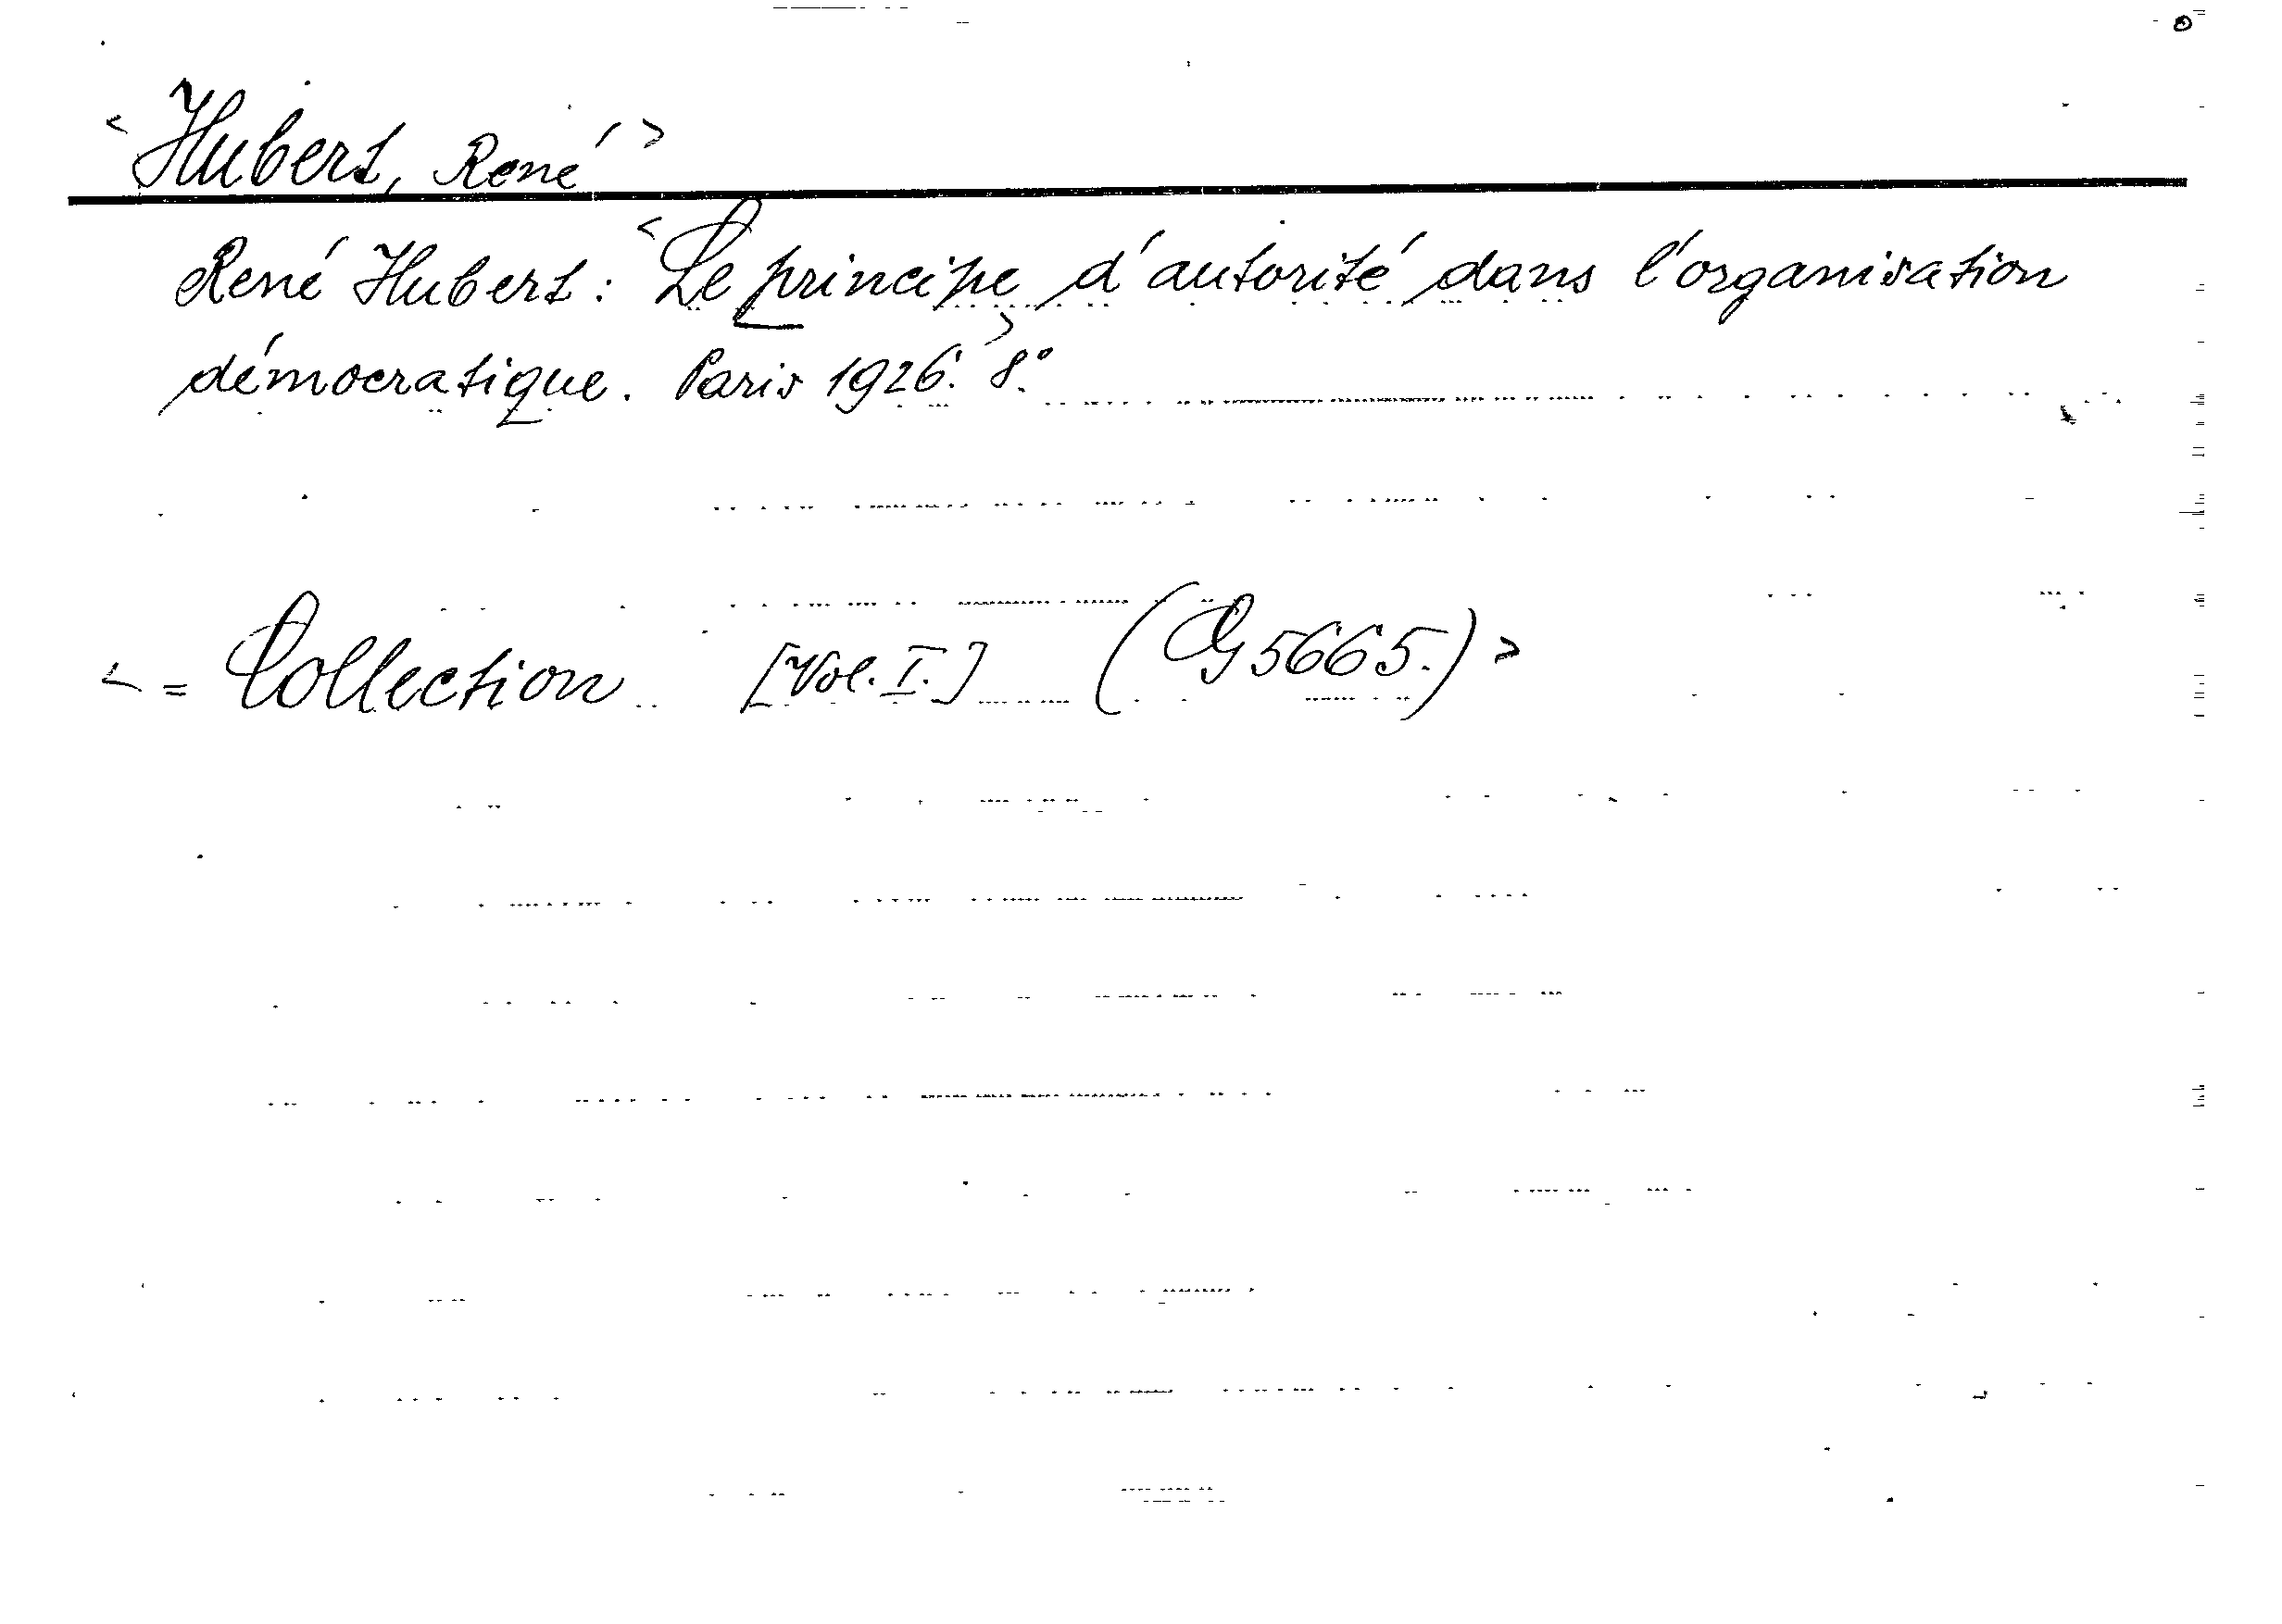 <Hubert, René>
René Hubert: <Le principe d'autorité dans l'organisation
démocratique. Paris 1926.> 8°.
<= Collection [Vol. I.] (G 5665.)>